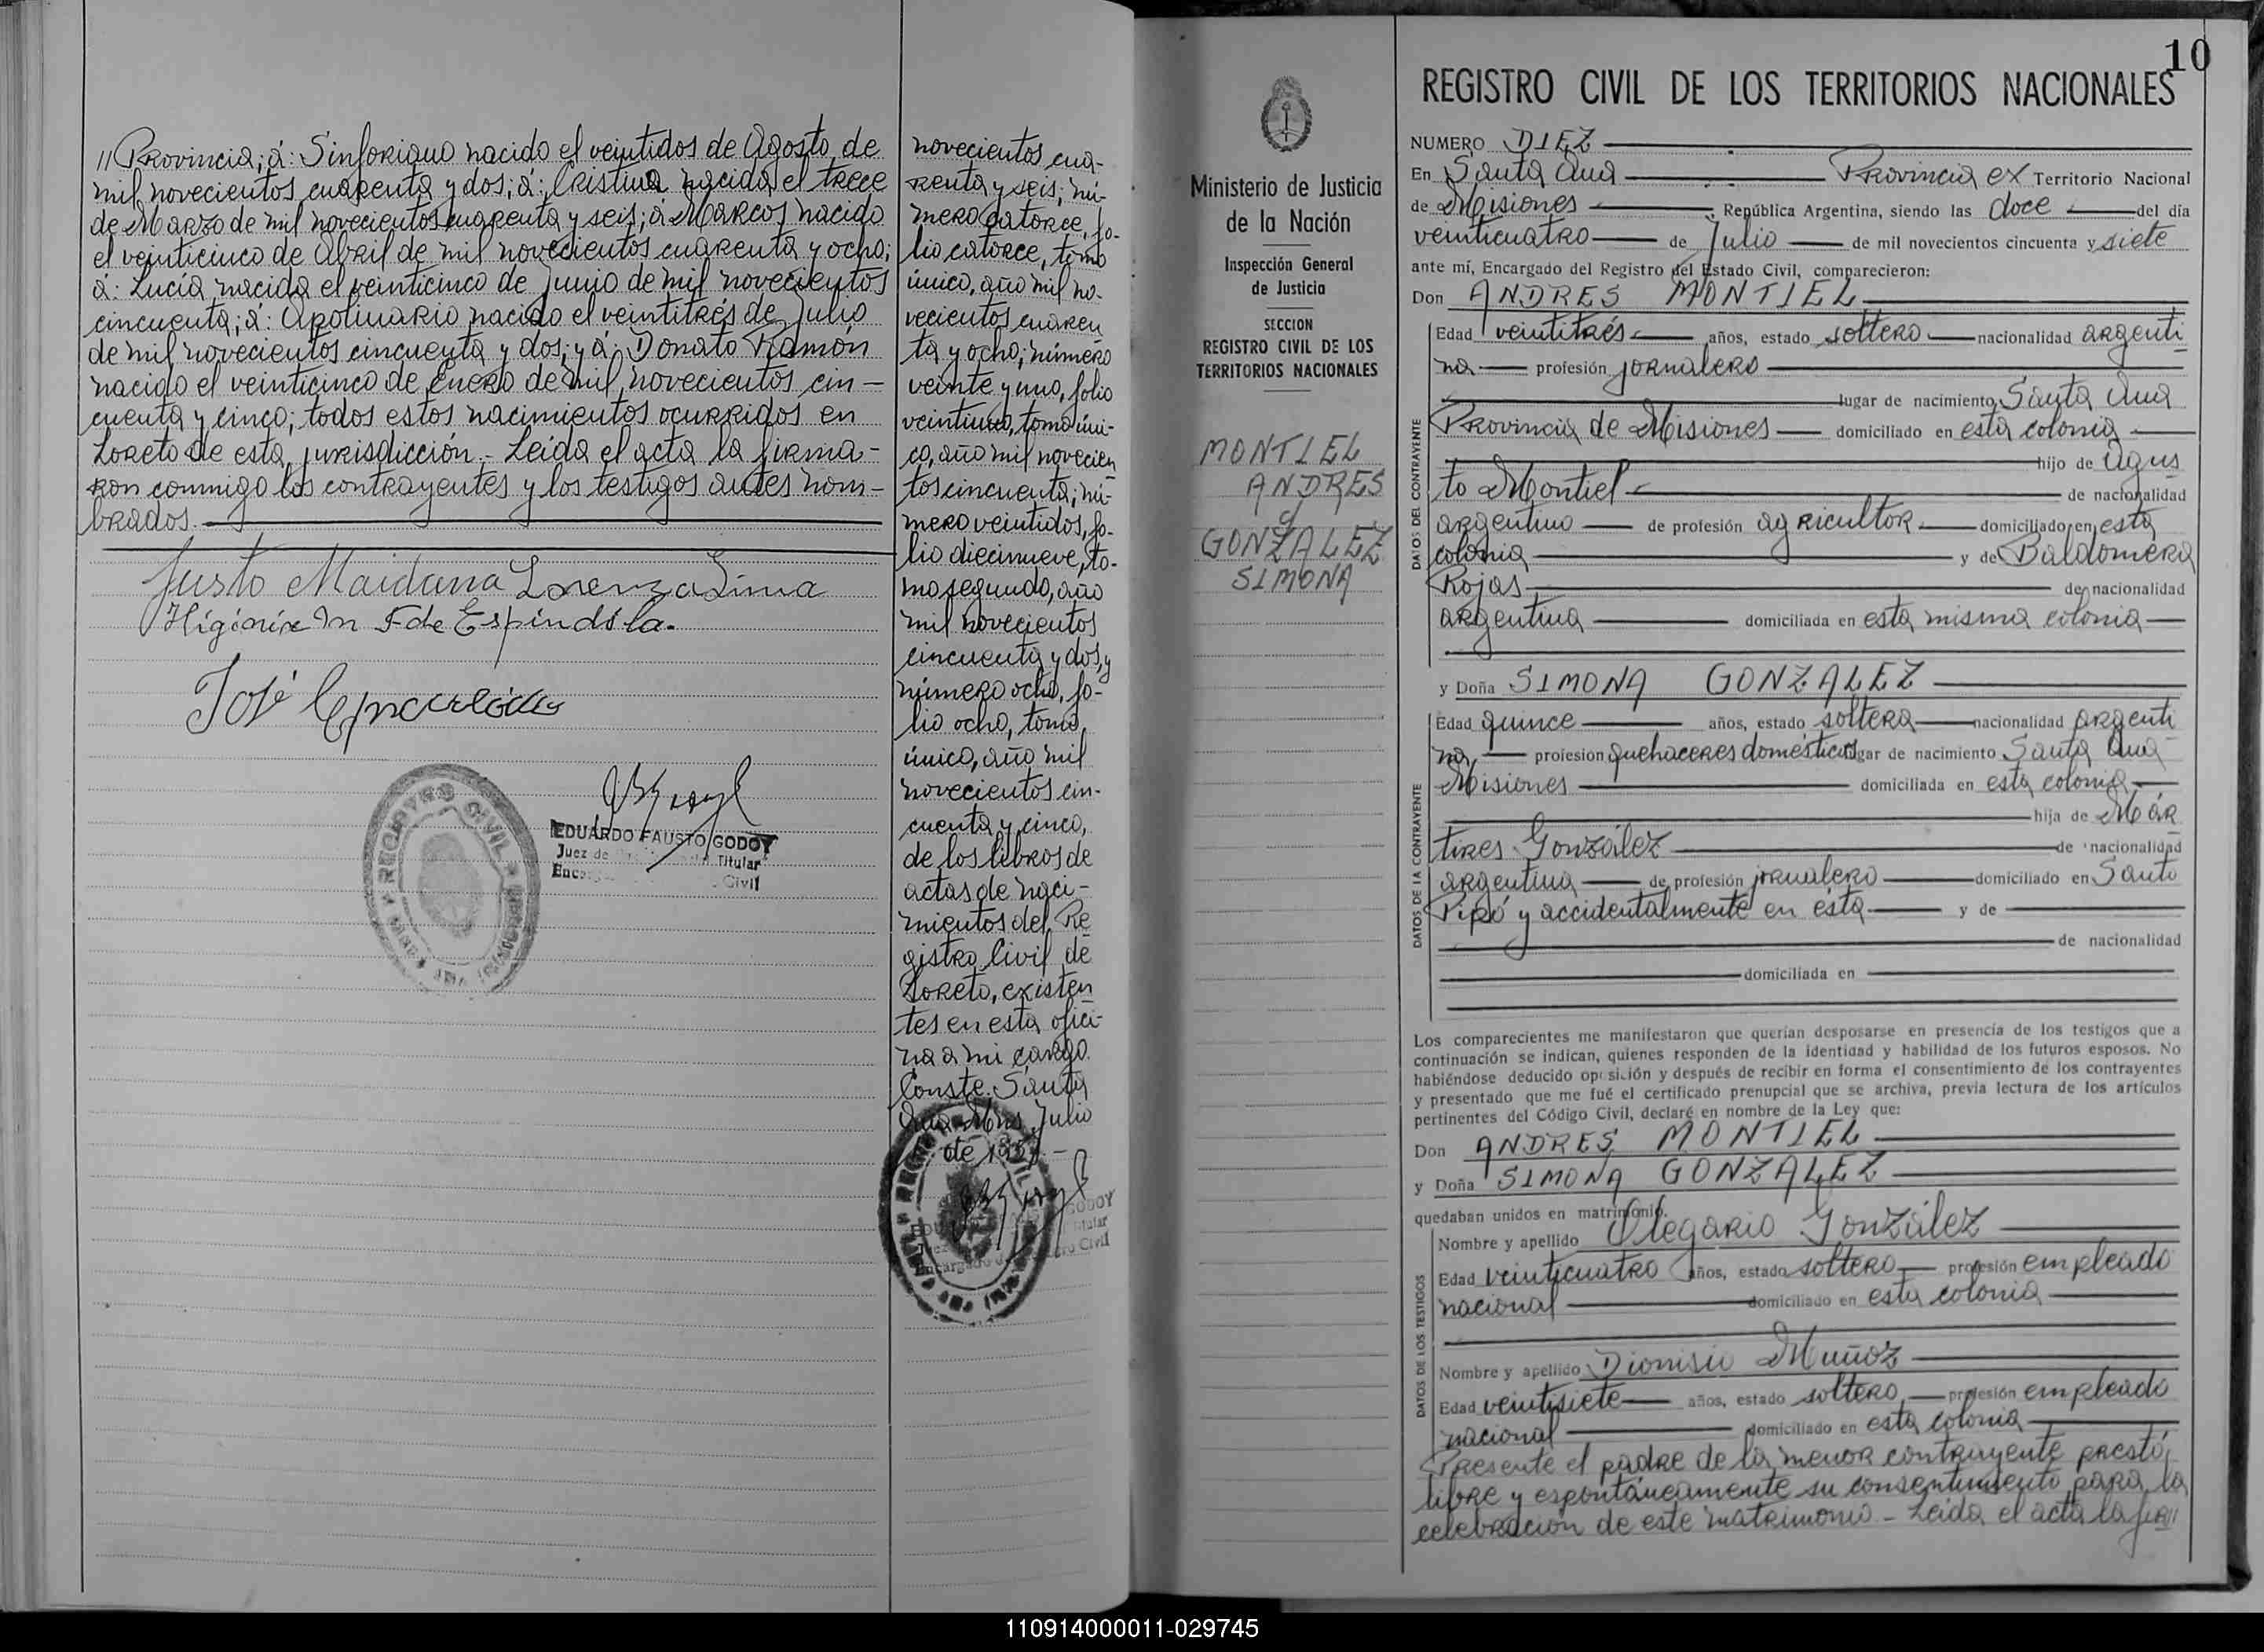 // Provincia; á: Sinforiano nacido el veintidos de Agosto de
mil novecientos cuarenta y dos; á: Cristina nacida el trece
de Marzo de mil novecientos cuarenta y seis; á Marcos nacido
el veinticinco de Abril de mil novecientos cuarenta y ocho;
á: Lucía nacida el veinticinco de Junio de mil novecientos
cincuenta; á: Apolinario nacido el veintitrés de Julio
de mil novecientos cincuenta y dos; y á: Donato Ramón
nacido el veinticinco de Enero de mil novecientos cin-
cuenta y cinco; todos estos nacimientos ocurridos en
Loreto de esta jurisdicción.- Leída el acta la firma-
ron conmigo los contrayentes y los testigos antes nom-
brados.
Justo Maidana Lorenza Lima
Higinia M F de Espíndola.
José
EDUARDO FAUSTO GODOY
Juez de Titular
Civil
novecientos cua-
renta y seis; nú-
mero catorce, fo-
lio catorce, tomo
único, año mil no-
vecientos cuaren
ta y ocho; número
veinte y uno, folio
veintiuno, tomo úni-
co, año mil novecien
tos cincuenta; nú-
mero veintidos, fo-
lio diecinueve, to-
mo segundo, año
mil novecientos
cincuenta y dos, y
número ocho, fo-
lio ocho, tomo
único, año mil
novecientos cin-
cuenta y cinco,
de los libros de
actas de naci-
mientos del Re
gistro Civil de
Loreto, existen
tes en esta ofici-
na a mi cargo.
Conste. Santa
Ana Mns, Julio
de 1957 -
10
REGISTRO CIVIL DE LOS TERRITORIOS NACIONALES
Ministerio de Justicia
de la Nación
Inspección General
de Justicia
SECCION
REGISTRO CIVIL DE LOS
TERRITORIOS NACIONALES
MONTIEL
ANDRES
y
GONZALEZ
SIMONA
NUMERO DIEZ
En Santa Ana Provincia ex Territorio Nacional
de Misiones República Argentina, siendo las doce del día
veinticuatro de Julio de mil novecientos cincuenta y siete
ante mí, Encargado del Registro del Estado Civil, comparecieron:
Don ANDRES MONTIEL
DATOS DEL CONTRAYENTE
Edad veintitrés años, estado soltero nacionalidad argenti
na profesión jornalero
lugar de nacimiento Santa Ana
Provincia de Misiones domiciliado en esta colonia
hijo de Agus
to Montiel de nacionalidad
argentino de profesión agricultor domiciliado en esta
colonia y de Baldomera
Rojas de nacionalidad
argentina domiciliada en esta misma colonia
y Doña SIMONA GONZALEZ
DATOS DE LA CONTRAYENTE
Edad quince años, estado soltera nacionalidad argenti
na profesion quehaceres domésticos lugar de nacimiento Santa Ana
Misiones domiciliada en esta colonia
hija de Már
tires González de nacionalidad
argentina de profesión jornalero domiciliado en Santo
Pipó y accidentalmente en ésta y de
de nacionalidad
domiciliada en
Los comparecientes me manifestaron que querían desposarse en presencia de los testigos que a
continuación se indican, quienes responden de la identidad y habilidad de los futuros esposos. No
habiéndose deducido oposición y después de recibir en forma el consentimiento de los contrayentes
y presentado que me fué el certificado prenupcial que se archiva, previa lectura de los artículos
pertinentes del Código Civil, declaré en nombre de la Ley que:
Don ANDRES MONTIEL
y Doña SIMONA GONZALEZ
quedaban unidos en matrimonio.
DATOS DE LOS TESTIGOS
Nombre y apellido Olegario González
Edad veinticuatro años, estado soltero profesión empleado
nacional domiciliado en esta colonia
Nombre y apellido Dionisio Muñoz
Edad veintisiete años, estado soltero profesión empleado
nacional domiciliado en esta colonia
Presente el padre de la menor contrayente prestó
libre y espontáneamente su consentimiento para la
celebración de este matrimonio - Leída el acta la fir//
110914000011-029745